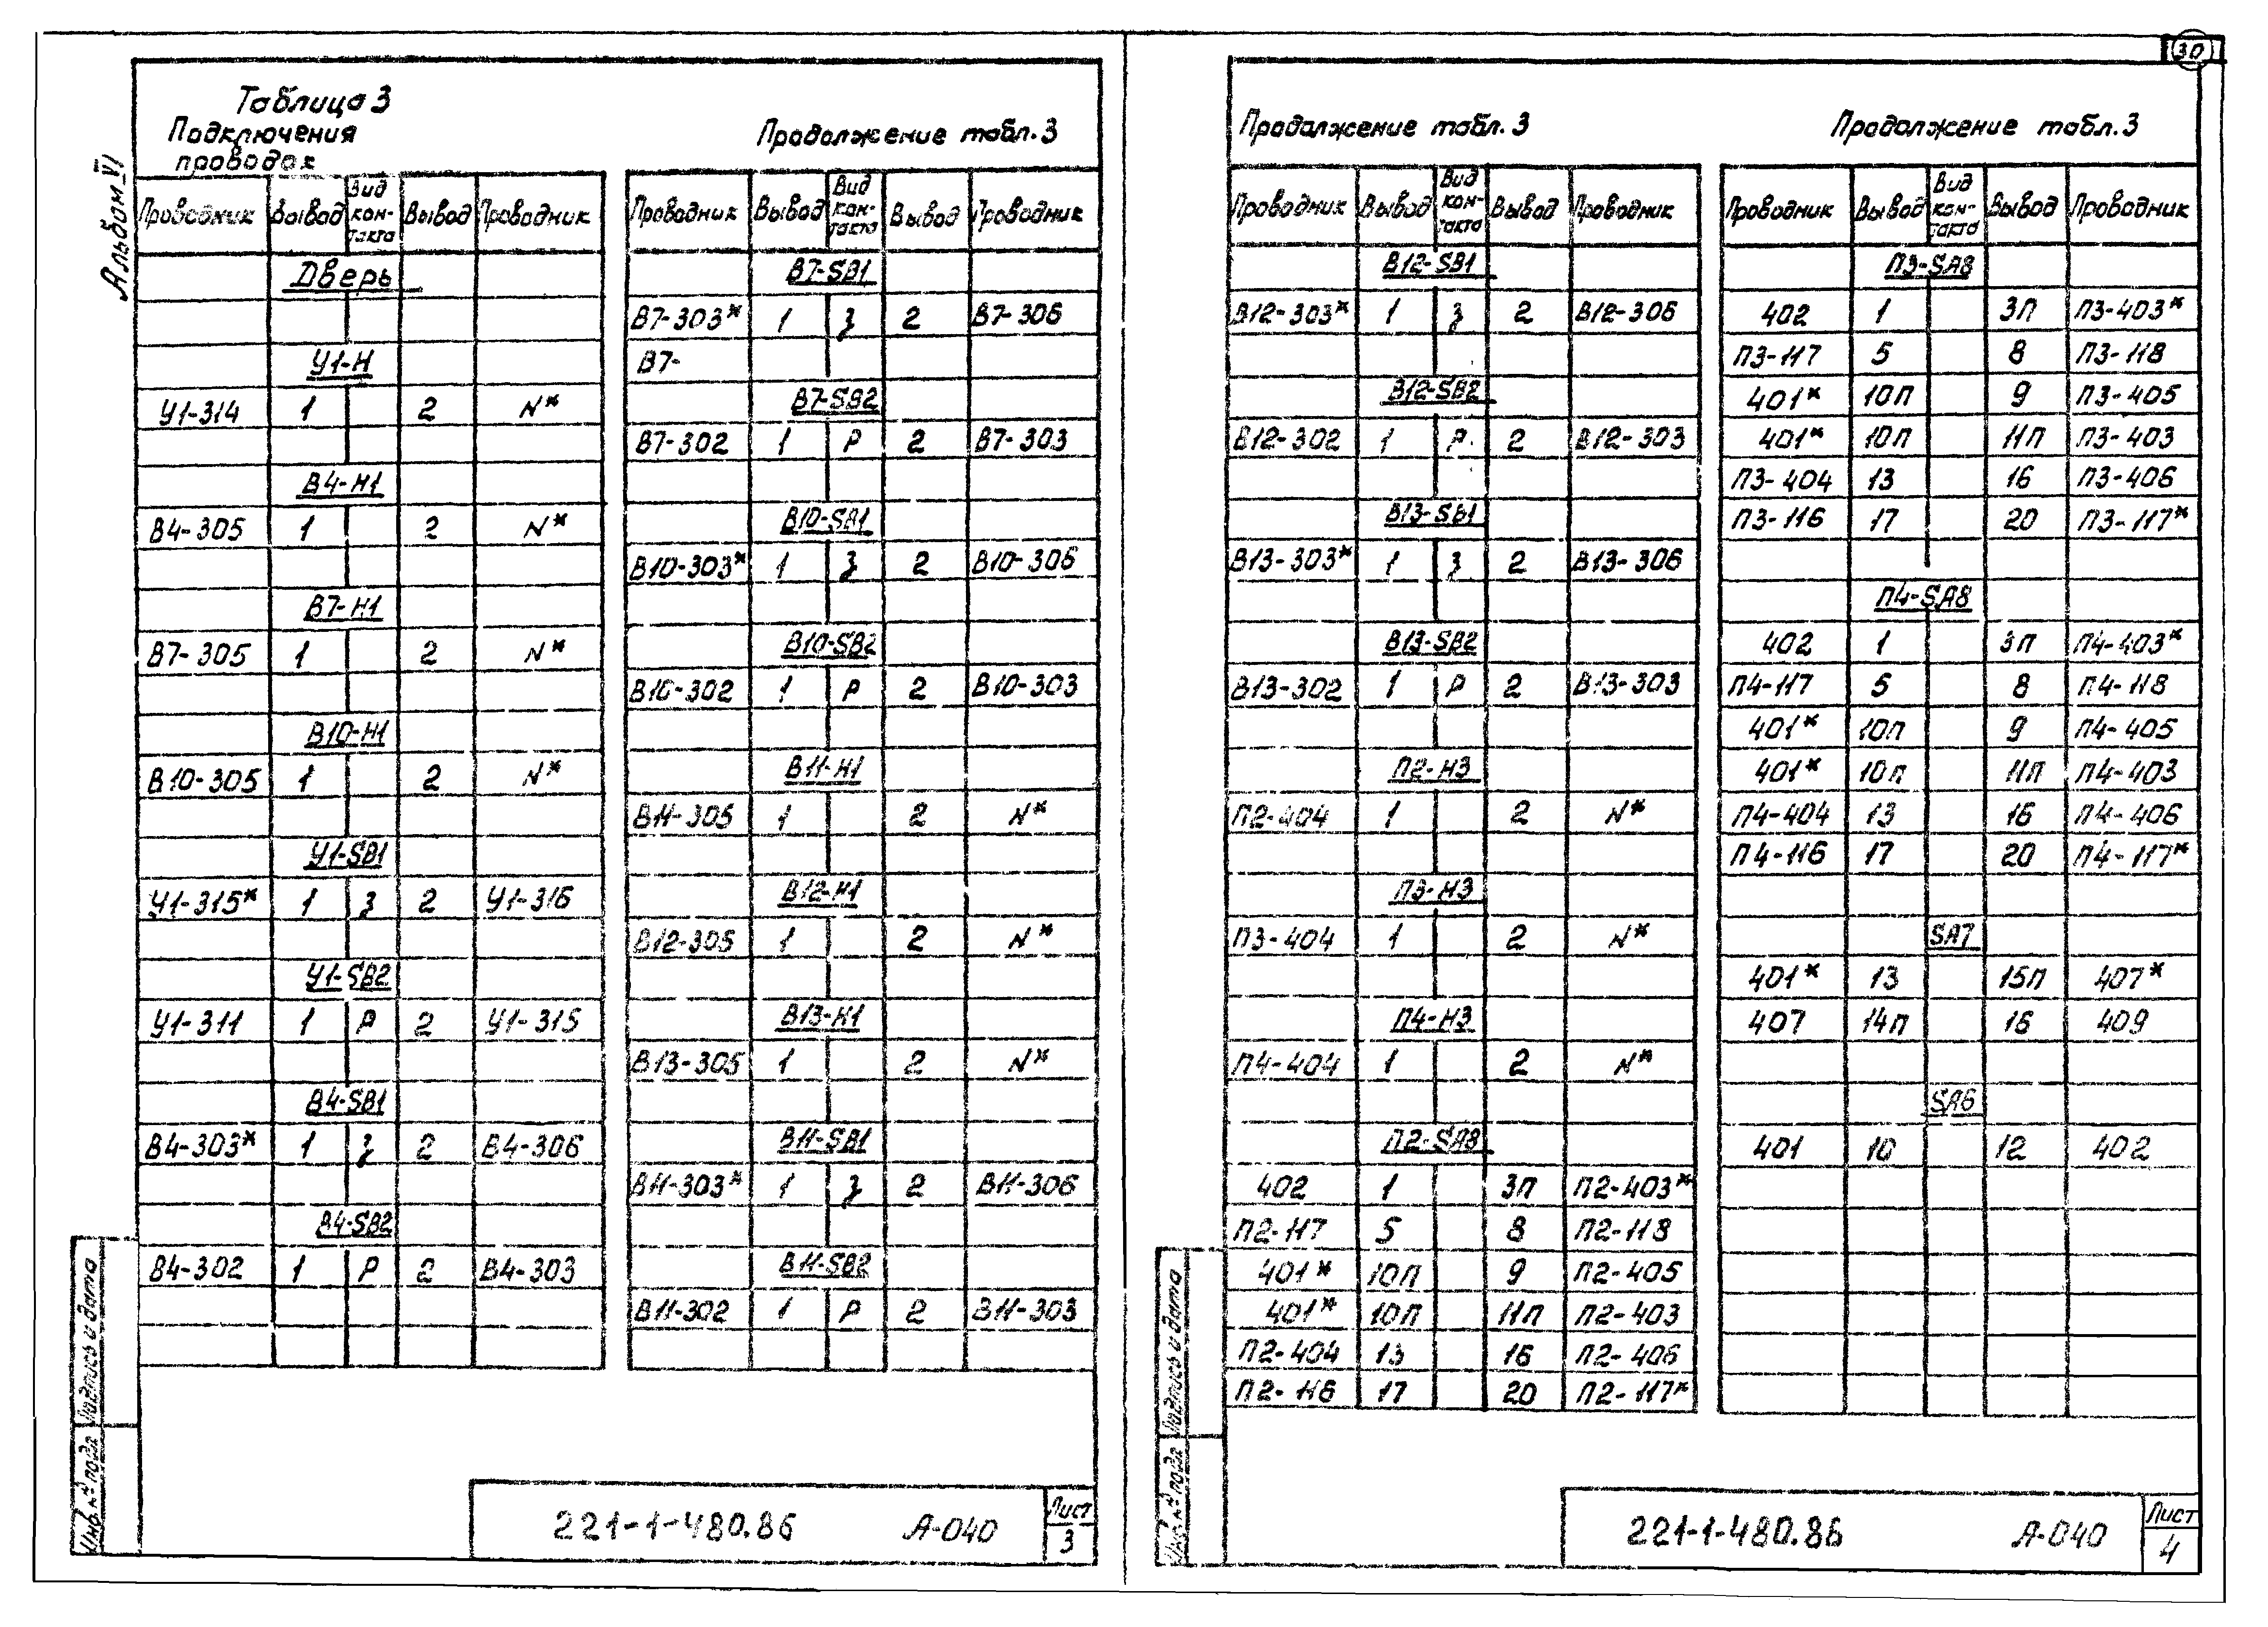 30
Альбом VI
Таблица 3
Подключения
проводок
Проводник Вывод Вид контакта Вывод Проводник
Дверь
У1-Н
У1-314 1 2 N*
В4-Н1
В4-305 1 2 N*
В7-Н1
В7-305 1 2 N*
В10-Н1
В10-305 1 2 N*
У1-SB1
У1-315* 1 з 2 У1-316
У1-SB2
У1-311 1 Р 2 У1-315
В4-SB1
В4-303* 1 з 2 В4-306
В4-SB2
В4-302 1 Р 2 В4-303
Продолжение табл.3
Проводник Вывод Вид контакта Вывод Проводник
В7-SB1
В7-303* 1 з 2 В7-306
В7-
В7-SB2
В7-302 1 Р 2 В7-303
В10-SB1
В10-303* 1 з 2 В10-306
В10-SB2
В10-302 1 Р 2 В10-303
В11-Н1
В11-305 1 2 N*
В12-Н1
В12-305 1 2 N*
В13-Н1
В13-305 1 2 N*
В11-SB1
В11-303* 1 з 2 В11-306
В11-SB2
В11-302 1 Р 2 В11-303
Инв.№ подл. Подпись и дата
221-1-480.86 А-040 Лист 3
Продолжение табл.3
Проводник Вывод Вид контакта Вывод Проводник
В12-SB1
В12-303* 1 з 2 В12-306
В12-SB2
В12-302 1 Р 2 В12-303
В13-SB1
В13-303* 1 з 2 В13-306
В13-SB2
В13-302 1 Р 2 В13-303
П2-Н3
П2-404 1 2 N*
П3-Н3
П3-404 1 2 N*
П4-Н3
П4-404 1 2 N*
П2-SA8
402 1 3П П2-403*
П2-117 5 8 П2-118
401* 10П 9 П2-405
401* 10П 11П П2-403
П2-404 13 16 П2-406
П2-116 17 20 П2-117*
Продолжение табл.3
Проводник Вывод Вид контакта Вывод Проводник
П3-SA8
402 1 3П П3-403*
П3-117 5 8 П3-118
401* 10П 9 П3-405
401* 10П 11П П3-403
П3-404 13 16 П3-406
П3-116 17 20 П3-117*
П4-SA8
402 1 3П П4-403*
П4-117 5 8 П4-118
401* 10П 9 П4-405
401* 10П 11П П4-403
П4-404 13 16 П4-406
П4-116 17 20 П4-117*
SA7
401* 13 15П 407*
407 14П 16 409
SA6
401 10 12 402
Инв.№ подл. Подпись и дата
221-1-480.86 А-040 Лист 4